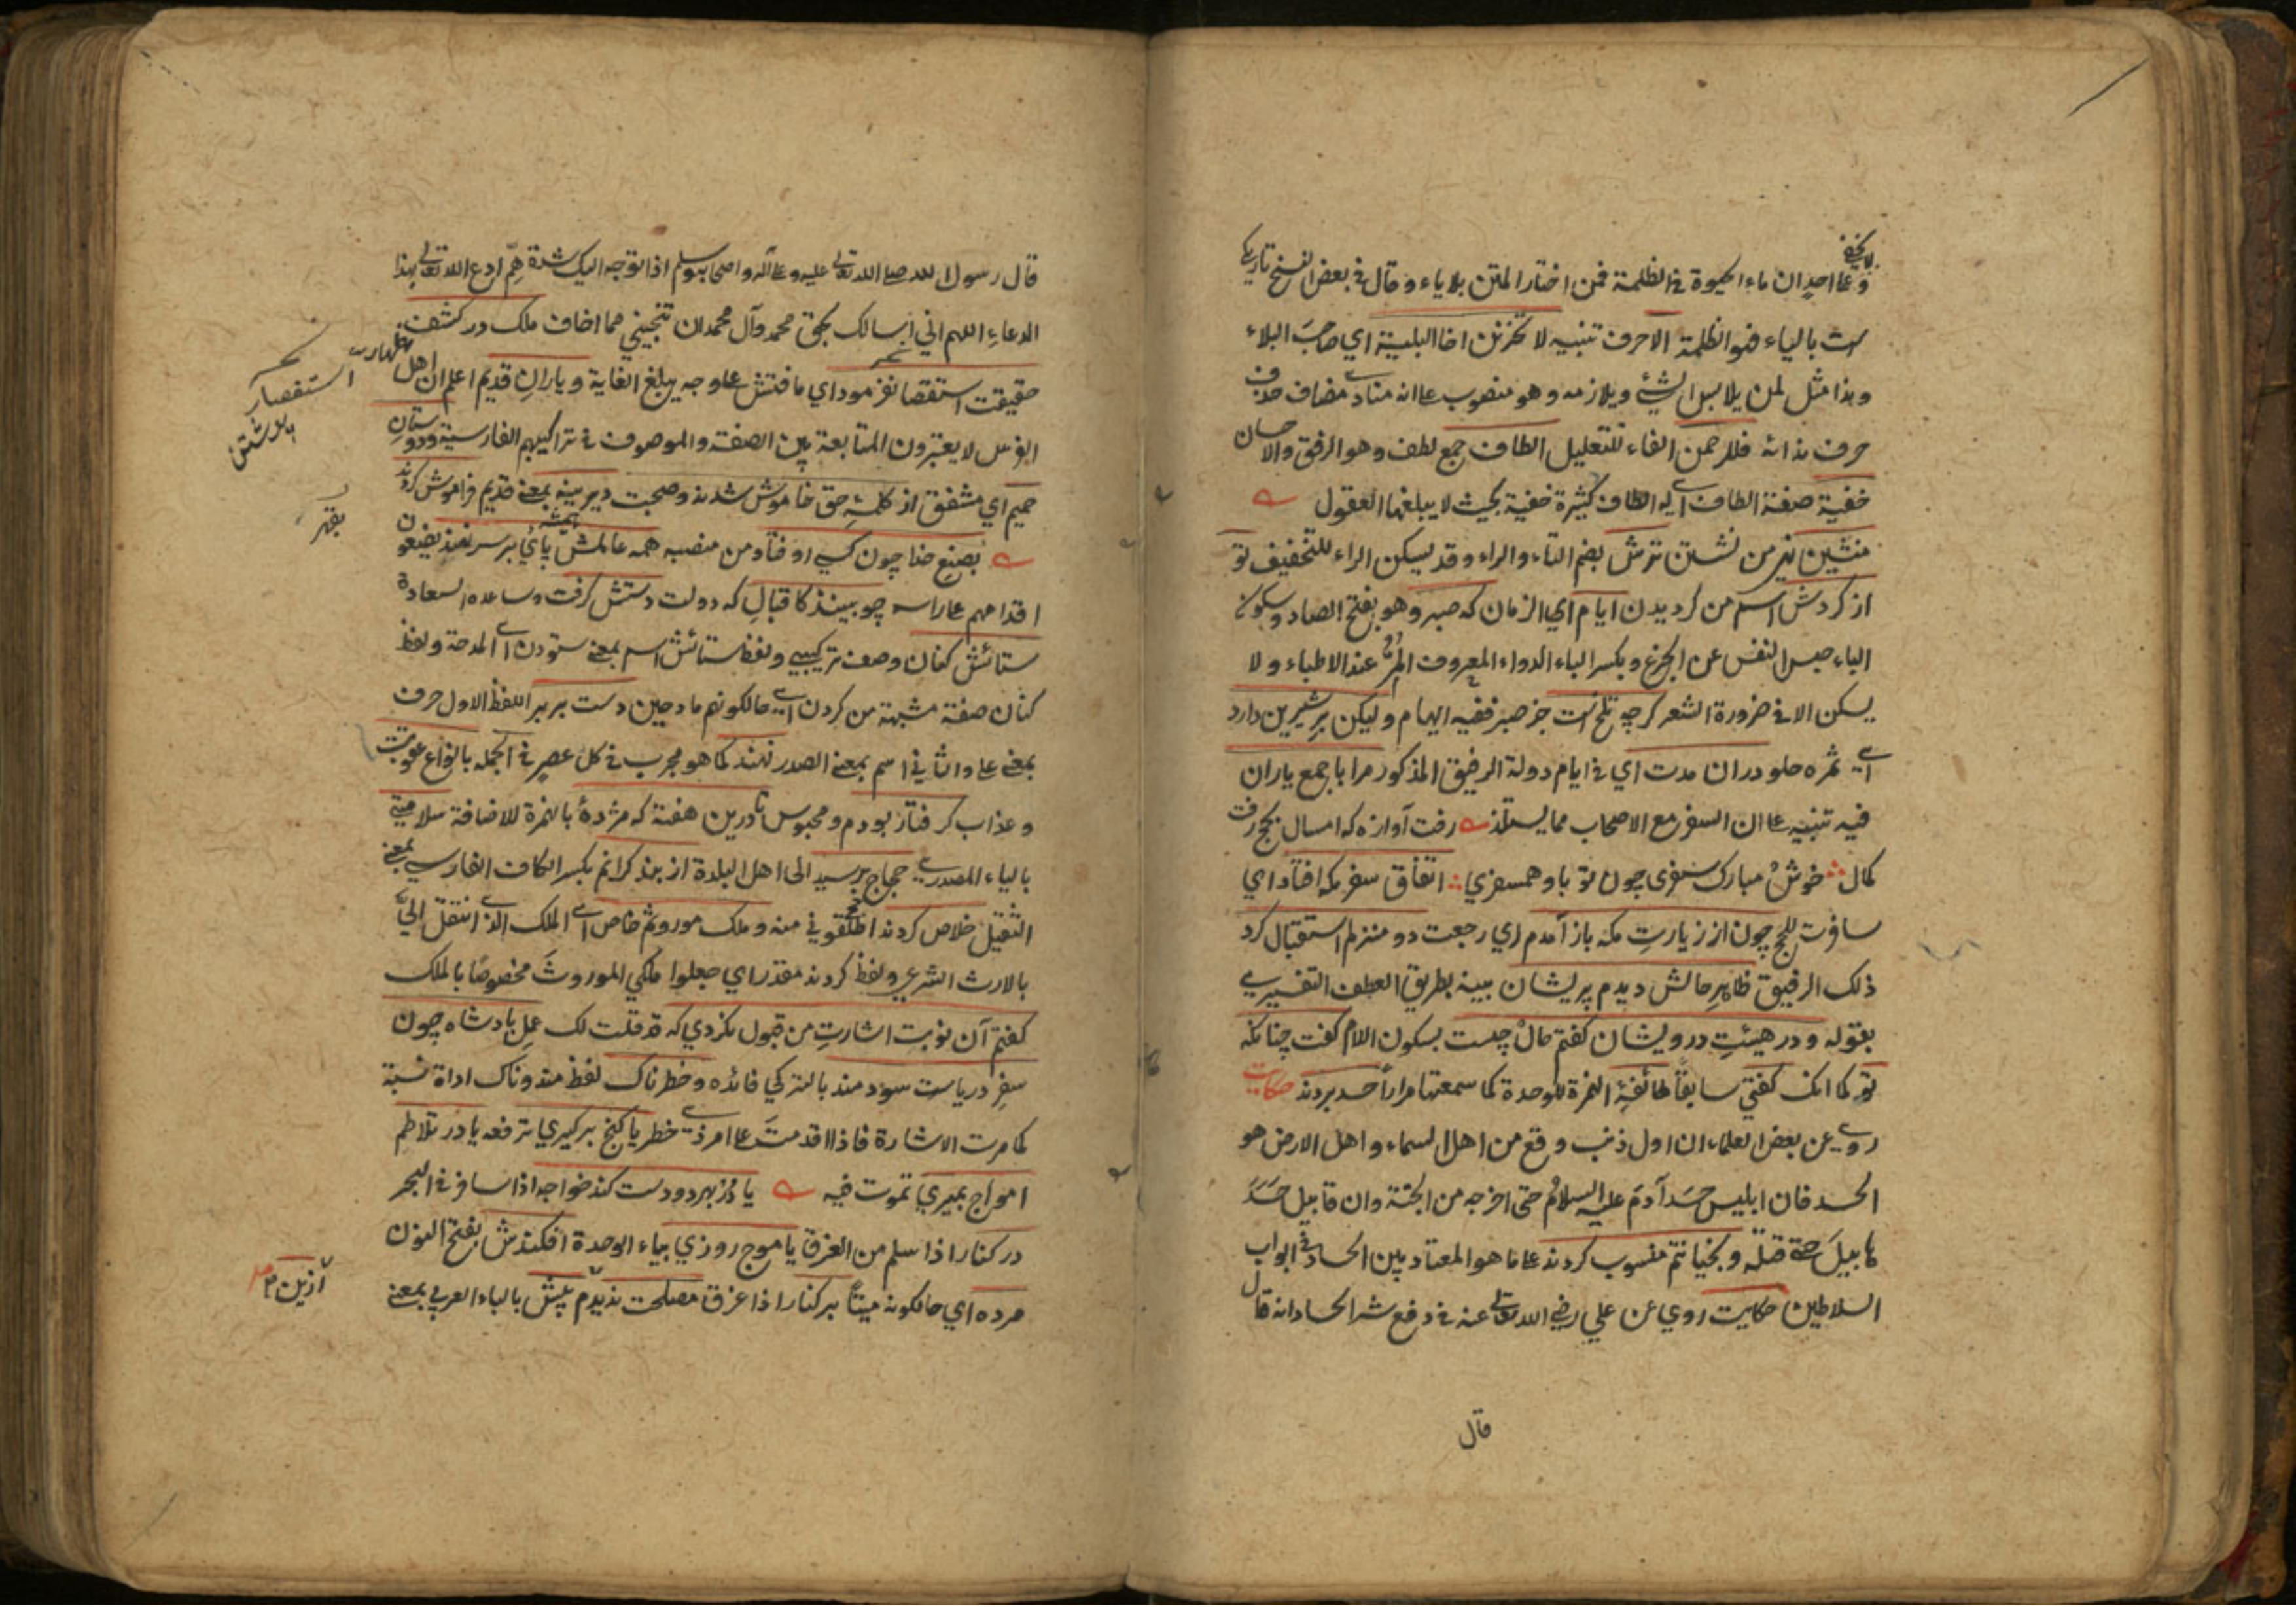 لا يخفى
وعلى احد ان ماء الحيوة في الظلمة فمن اختار المتن بلا ياء وقال في بعض النسخ تاريكى
ست بالياء فهو الظلمة الا حرف تنبيه لا تحزنن اخا البلية اي صاحب البلاء
وهذا مثل لمن يلابس الشئ ويلازمه وهو منصوب على انه مناداى مضاف حذف
حرف ندائه فللرحمن الفاء للتعليل الطاف جمع لطف وهو الرفق والاحسان
خفية صفة الطاف اى له الطاف كثيرة خفية بحيث لا يبلغها العقول
منشين نهي من نشستن ترش بضم التاء والراء وقد يسكن الراء للتخفيف تو
از كردش اسم من كرديدن ايام اي الزمان كه صبر وهو بفتح الصاد وسكون
الباء حبس النفس عن الجزع وبكسر الباء الدواء المعروف المر عند الاطباء ولا
يسكن الا في ضرورة الشعر كرچه تلخ است جز صبر ففيه ايهام وليكن بر شيرين دارد
اى ثمره حلو دران مدت اي في ايام دولة الرفيق المذكور مرا با جمع ياران
فيه تنبيه على ان السفر مع الاصحاب مما يستلذ رفت آوازه كه امسال بحج رفت
كمال خوش مبارك سفرى چون تو باو همسفري اتفاق سفر مكه افتاد اي
سافرت للحج چون از زيارت مكه باز آمدم اي رجعت دو منزلم استقبال كرد
ذلك الرفيق ظاهر حالش ديدم پريشان بينه بطريق العطف التفسيري
بقوله ودر هيئت درويشان كفتم حال چيست بسكون اللام كفت چنانكه
تو كما انك كفتي سابقا طائفة الهمزة للوحدة كما سمعتها مرارا حسد بردند حكايت
روى عن بعض العلماء ان اول ذنب وقع من اهل السماء واهل الارض هو
الحسد فان ابليس حسد آدم عليه السلام حتى اخرجه من الجنة وان قابيل حسد
هابيل حتى قتله وبخيانتم منسوب كردند على ما هو المعتاد بين الحساد في ابواب
السلاطين حكايت روي عن علي رضي الله تعالى عنه في دفع شر الحساد انه قال
قال
قال رسول الله صلى الله تعالى عليه وعلى آله واصحابه وسلم اذا توجه اليك شدة هم ادع الله تعالى بهذا
الدعاء اللهم اني اسالك بحق محمد وآل محمد ان تنجيني مما اخاف ملك در كشف
حقيقت استقصا نفرمود اي ما فتش على وجه يبلغ الغاية وياران قديم اعلم ان اهل
الفرس لا يعتبرون المتابعة بين الصفة والموصوف في تراكيبهم الفارسية ودوستان
حميم اي مشفق از كلمة حق خاموش شدند وصحبت ديرينه بمعنى قديم فراموش كردند
بصنع خدا چون كسي اوفتاد من منصبه همه عالمش پاي بر سر نهند يضعون
اقدامهم على راسه چو بينند كاقبال كه دولت دستش كرفت وساعده السعادة
ستائش كنان وصف تركيبي ولفظ ستائش اسم بمعنى ستودن اى المدحة ولفظ
كنان صفة مشبهة من كردن اى حالكونهم مادحين دست بر بر اللفظ الاول حرف
بمعنى على والثاني اسم بمعنى الصدر نهند كما هو مجرب في كل عصر في الجمله بانواع عقوبت
وعذاب كرفتار بودم ومحبوس تا درين هفته كه مژدۀ بالهمزة للاضافة سلامتي
بالياء المصدرى حجاج برسيد الى اهل البلدة از بند كرانم بكسر الكاف الفارسي بمعنى
الثقيل خلاص كردند اطلقوني منه وملك موروثم خاص اى الملك الذى انتقل الي
بالارث الشرعي ولفظ كردند مقدر اي جعلوا ملكي الموروث مخصوصا بالملك
كفتم آن نوبت اشارت من قبول نكردي كه قد قلت لك عمل پادشاه چون
سفر درياست سودمند بالتركي فائده وخطرناك لفظ مند وناك اداة نسبة
كما مرت الاشارة فاذا اقدمت على امر ذى خطر يا كنج بركيري ترفعه يا در تلاطم
امواج بميري تموت فيه يا در بهر دو دست كند خواجه اذا سافر في البحر
در كنار اذا سلم من الغرق يا موج روزي بياء الوحدة افكندش بفتح النون
مرده اي حالكونه ميتا بر كنار اذا غرق مصلحت نديدم پيش بالباء العربي بمعنى
بقهر
ازين